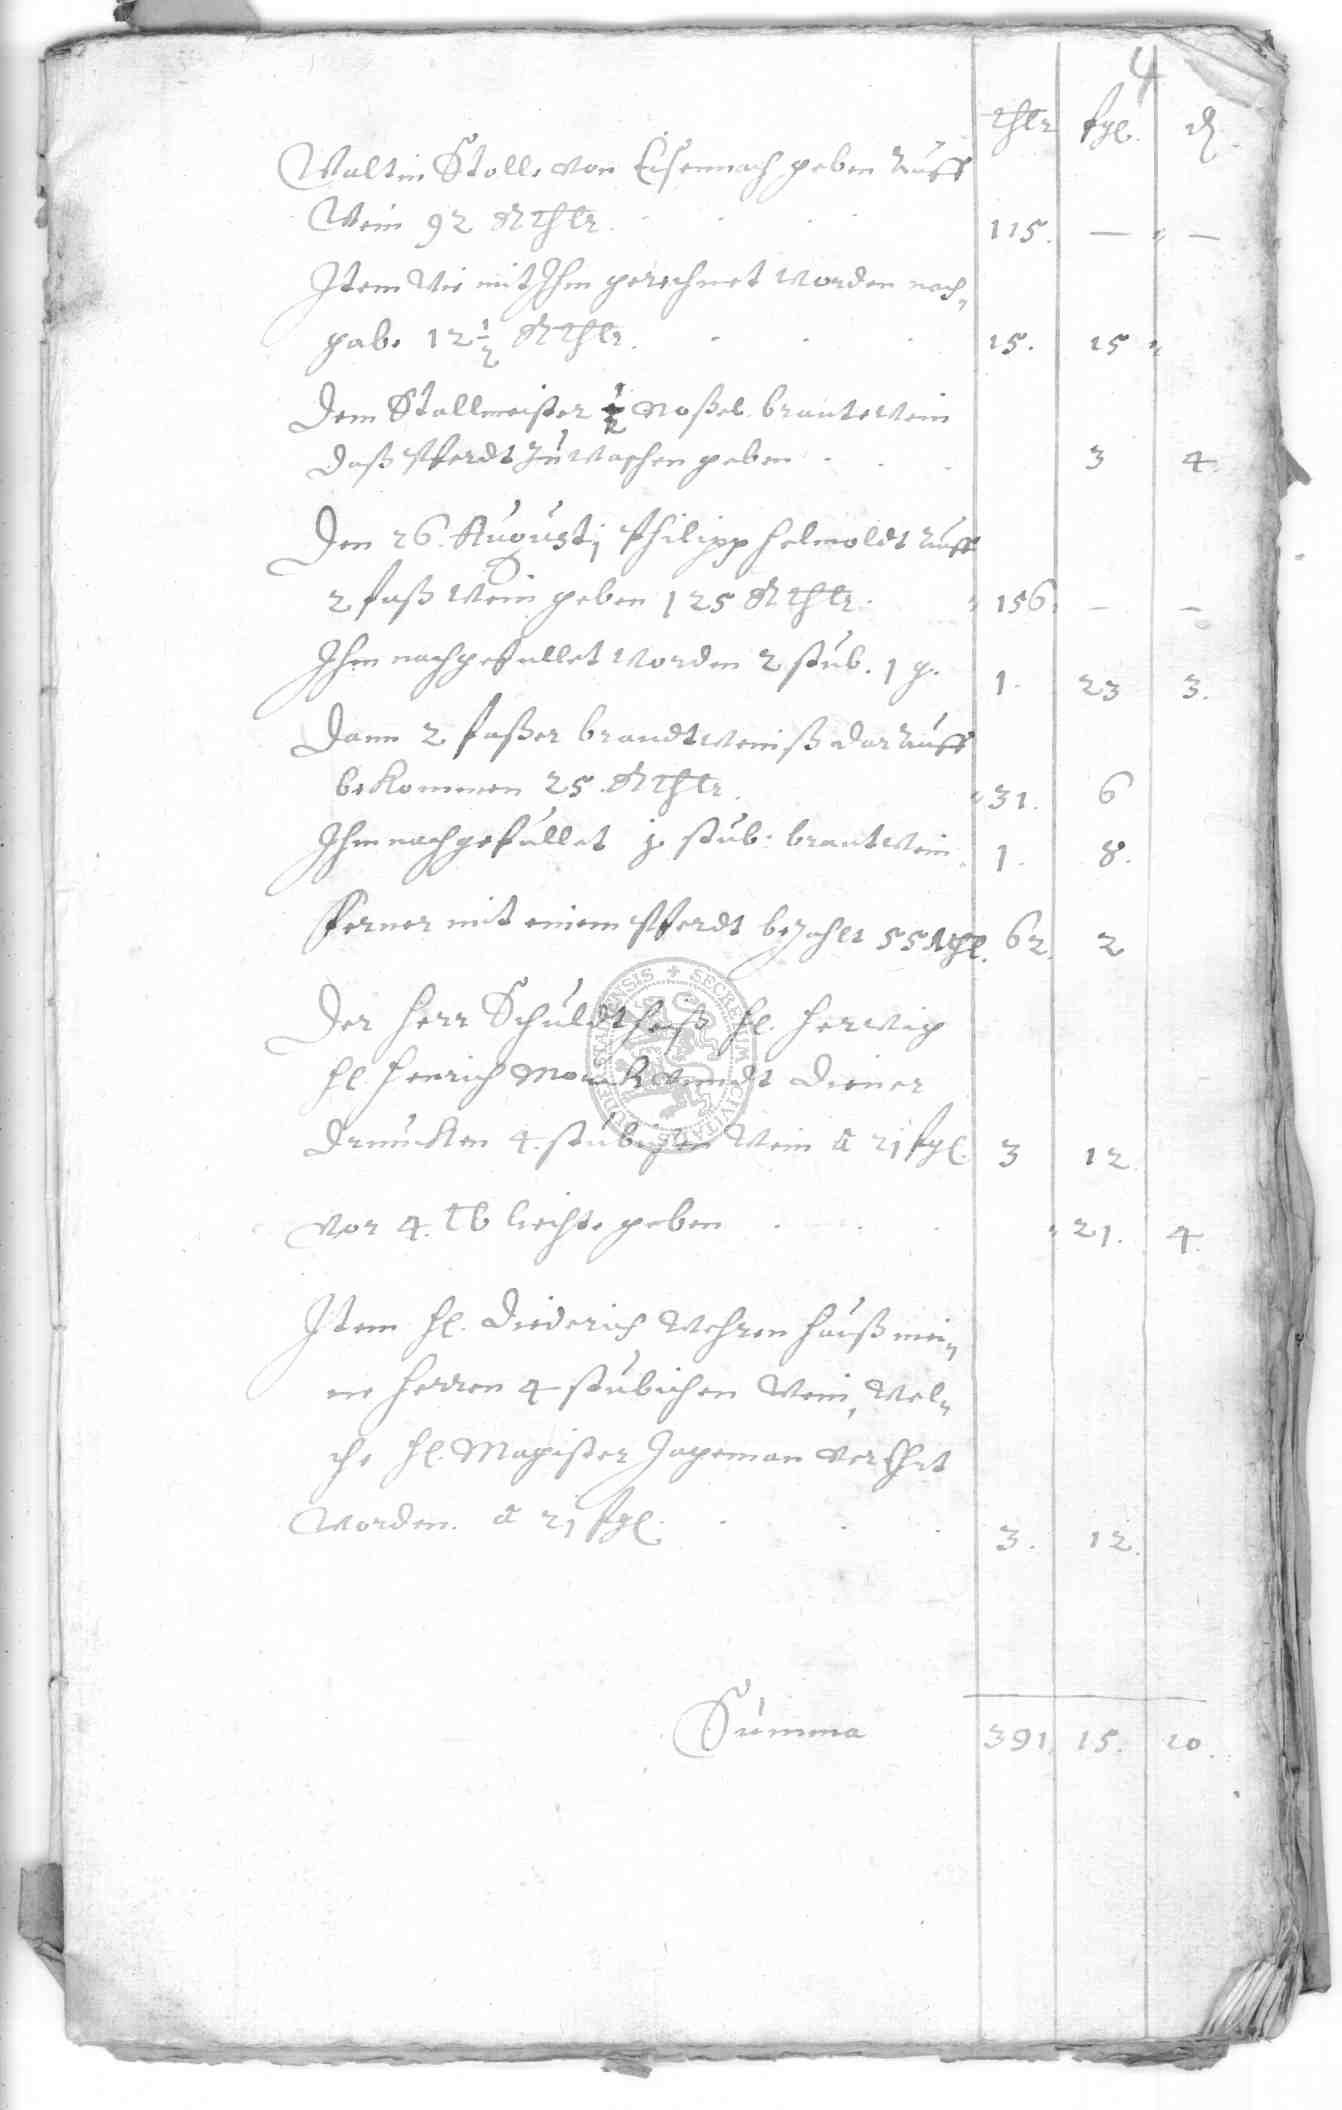 4
thlr fgl. ₰
Valtin Stolle von Eisennach geben Auff
Wein 92 Rthlr. 115. — " —
Item Wie mit Ihm gerechnet worden nach=
gabe 12 1/2 Rthlr. 15. 15 "
Dem Stallmeister 1/2 Noßel brantewein
daß Pferdt Zu Waschen geben 3 4.
Den 26. Augusti Philipp Helmoldt Auff
2 faß Wein geben 125 Rthlr. 156. — —
Ihm nachgefullet worden 2 stub. 1 q. 1. 23 3.
Dann 2 faßer brandtweinß darAuff
bekommen 25. Rthlr. 31. 6
Ihm nachgefullet j. stub. brantwein. 1. 8.
Ferner mit einem Pferdt bezahlt 55 Rthl. 62. 2
Der Herr Schuldtheiß Hl. Herwig
Hl. Henrich Monck Vundt Diener
Druncken 4. stubichen Wein a 21 fgl. 3 12.
Vor 4. lb liechte geben 21. 4.
Item Hl. Diederich Wehren hauß mei=
ne Herren 4 stubichen Wein, Wel=
che Hl. Magister Jageman verEhrt
Worden. a 21 fgl. 3. 12.
Summa 391. 15. 10.
SECRETUM CIVITATIS DUDERSTADENSIS